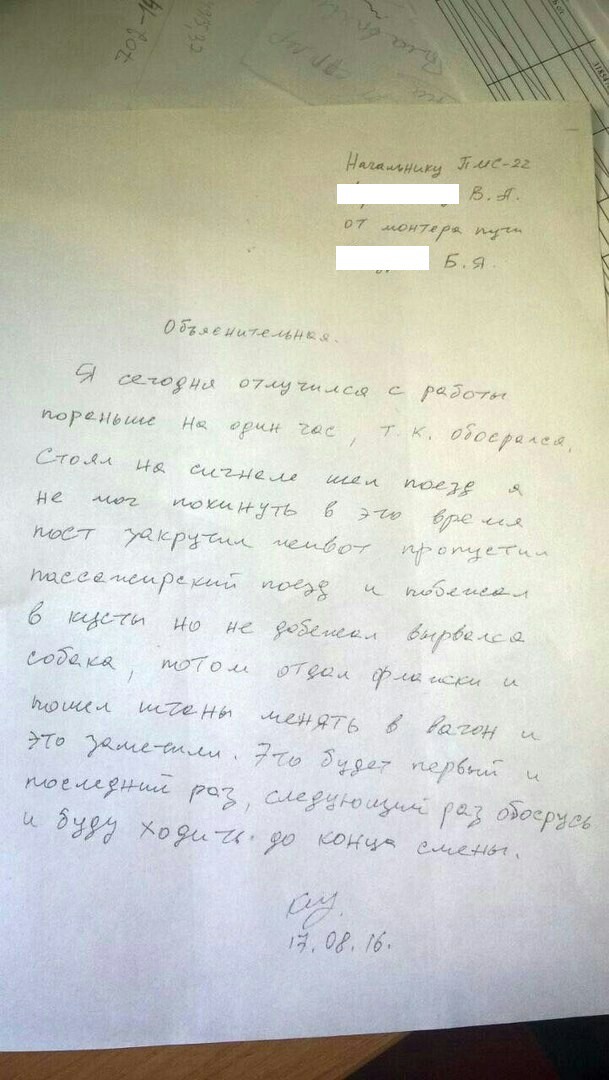 702-14
Начальнику ПМС-22
В.П.
от монтера пути
Б.Я.
Объяснительная.
Я сегодня отлучился с работы
пораньше на один час, т.к. обосрался.
Стоял на сигнале шел поезд я
не мог покинуть в это время
пост закрутил живот пропустил
пассажирский поезд и побежал
в кусты но не добежал вырвался
собака, потом отдал флажки и
пошел штаны менять в вагон и
это заметили. Это будет первый и
последний раз, следующий раз обосрусь
и буду ходить до конца смены.
17.08.16.